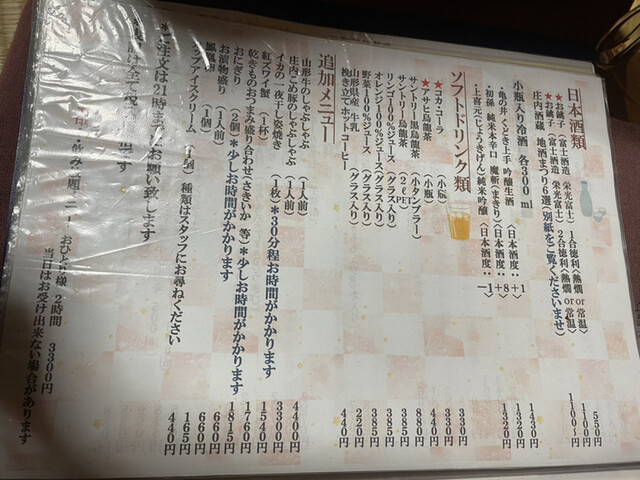 日本酒類
★お銚子(富士酒造 栄光富士)1合徳利〈熱燗or常温〉 550円
★お銚子(富士酒造 栄光富士)2合徳利〈熱燗or常温〉 1100円
庄内酒蔵 地酒まつり6選〈別紙をご覧くださいませ〉 1100円〜
小瓶入り冷酒 各300ml
・亀の井 くどき上手 吟醸生酒 〈日本酒度:+1〉 1430円
・初孫 純米本辛口 魔斬(まきり)〈日本酒度:+8〉 1320円
・上喜元(じょうきげん)純米吟醸 〈日本酒度:-1〉 1320円
ソフトドリンク類
★コカ・コーラ (小瓶) 330円
★アサヒ烏龍茶 (小瓶) 330円
サントリー黒烏龍茶 (小タンブラー) 440円
サントリー烏龍茶 (2ℓPET) 880円
リンゴ100%ジュース (グラス入り) 385円
オレンジ100%ジュース(グラス入り) 385円
野菜100%ジュース (グラス入り) 385円
山形県産 牛乳 (グラス入り) 220円
挽き立てホットコーヒー 440円
追加メニュー
山形牛のしゃぶしゃぶ (1人前) 4400円
庄内ごめ豚のしゃぶしゃぶ (1人前) 3300円
イカの一夜干し姿焼き (1枚)*30分程お時間がかかります 1540円
紅ズワイ蟹 (1杯)*少しお時間がかかります 1760円
乾きものおつまみ盛り合わせ(さきいか 等) 1815円
おにぎり (2個)*少しお時間がかかります 660円
お漬物盛り (1人前) 660円
温泉卵 (1個) 165円
カップアイスクリーム (1個) 種類はスタッフにお尋ねください 440円
ご注文は21時までにお願い致します
おひとり様 2時間 3300円
当日はお受け出来ない場合があります